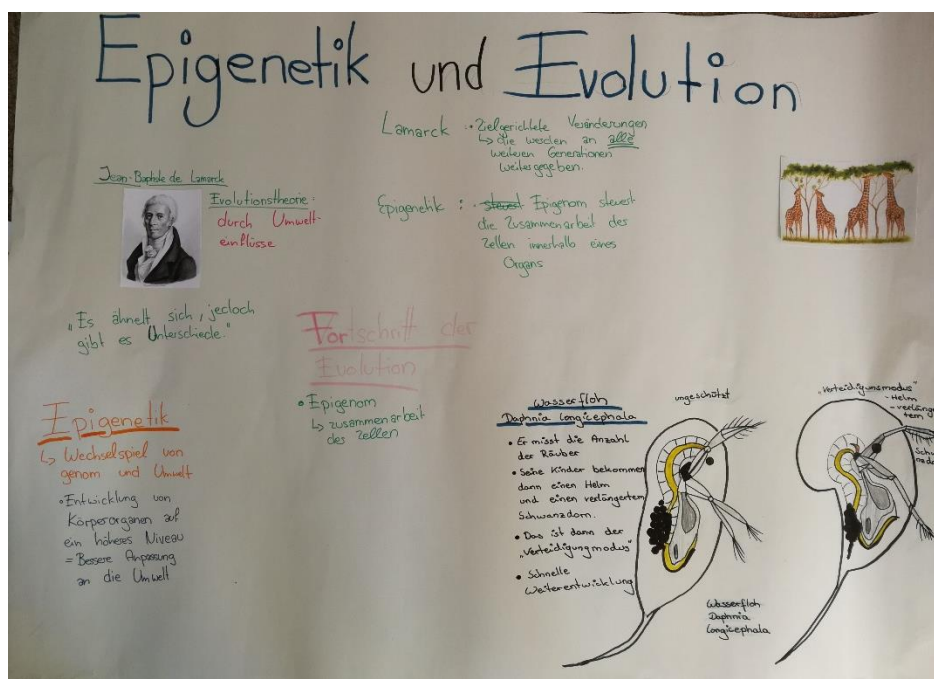 Epigenetik und Evolution
Lamarck : • Zielgerichtete Veränderungen
↳ die werden an alle
weiteren Generationen
weitergegeben.
Jean-Baptiste de Lamarck
Evolutionstheorie:
durch Umwelt-
einflüsse
Epigenetik : • steuert Epigenom steuert
die Zusammenarbeit der
Zellen innerhalb eines
Organs
"Es ähnelt sich, jedoch
gibt es Unterschiede."
Fortschritt der
Evolution
• Epigenom
↳ zusammenarbeit
des zellen
Epigenetik
↳ Wechselspiel von
genom und Umwelt
• Entwicklung von
Körperorganen auf
ein höheres Niveau
= Bessere Anpassung
an die Umwelt
Wasserfloh
Daphnia longicephala
• Er misst die Anzahl
der Räuber
• Seine Kinder bekommen
dann einen Helm
und einen verlängertem
Schwanzdorn.
• Das ist dann der
"Verteidigungmodus"
• Schnelle
Weiterentwicklung
ungeschützt
"Verteidigunsmodus"
- Helm
- verläng
tem
Schw
Wasserfloh
Daphnia
longicephala